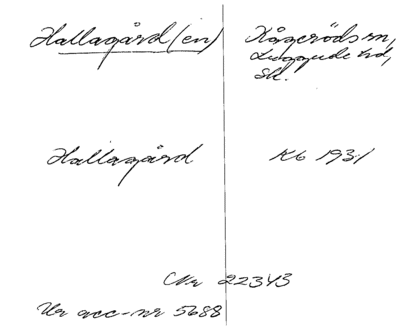 Hallagård(en) Kågeröds sn,
Luggude hd,
Sk.
Hallagård Kb 1931
Nr 22343
Ur acc-nr 5688